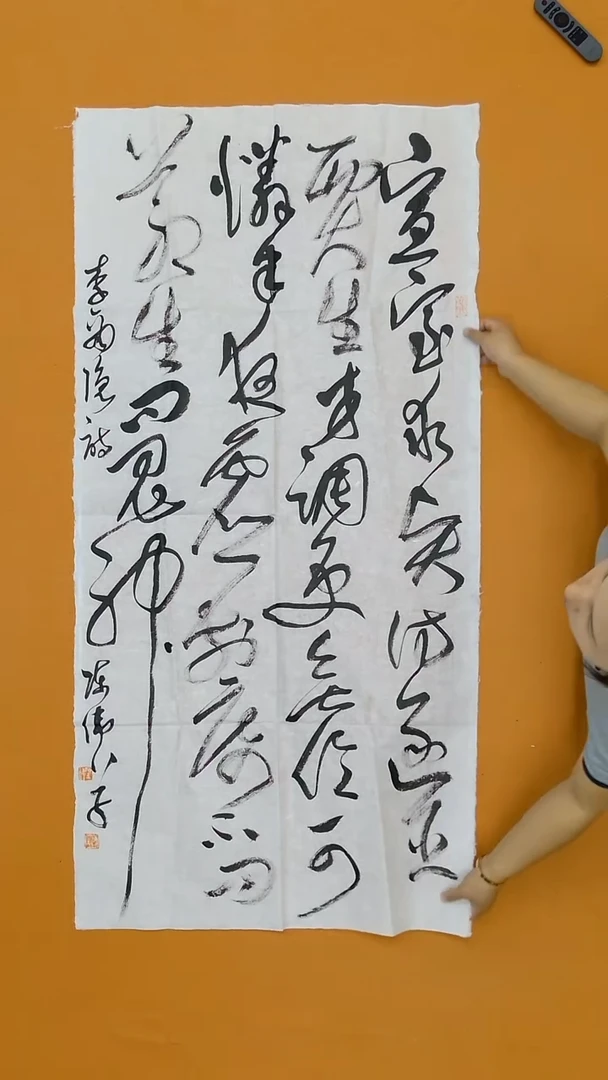 宣室求贤访逐臣
贾生才调更无伦可
憐半夜虚前席不问
苍生问鬼神
李商隐诗
陈伟